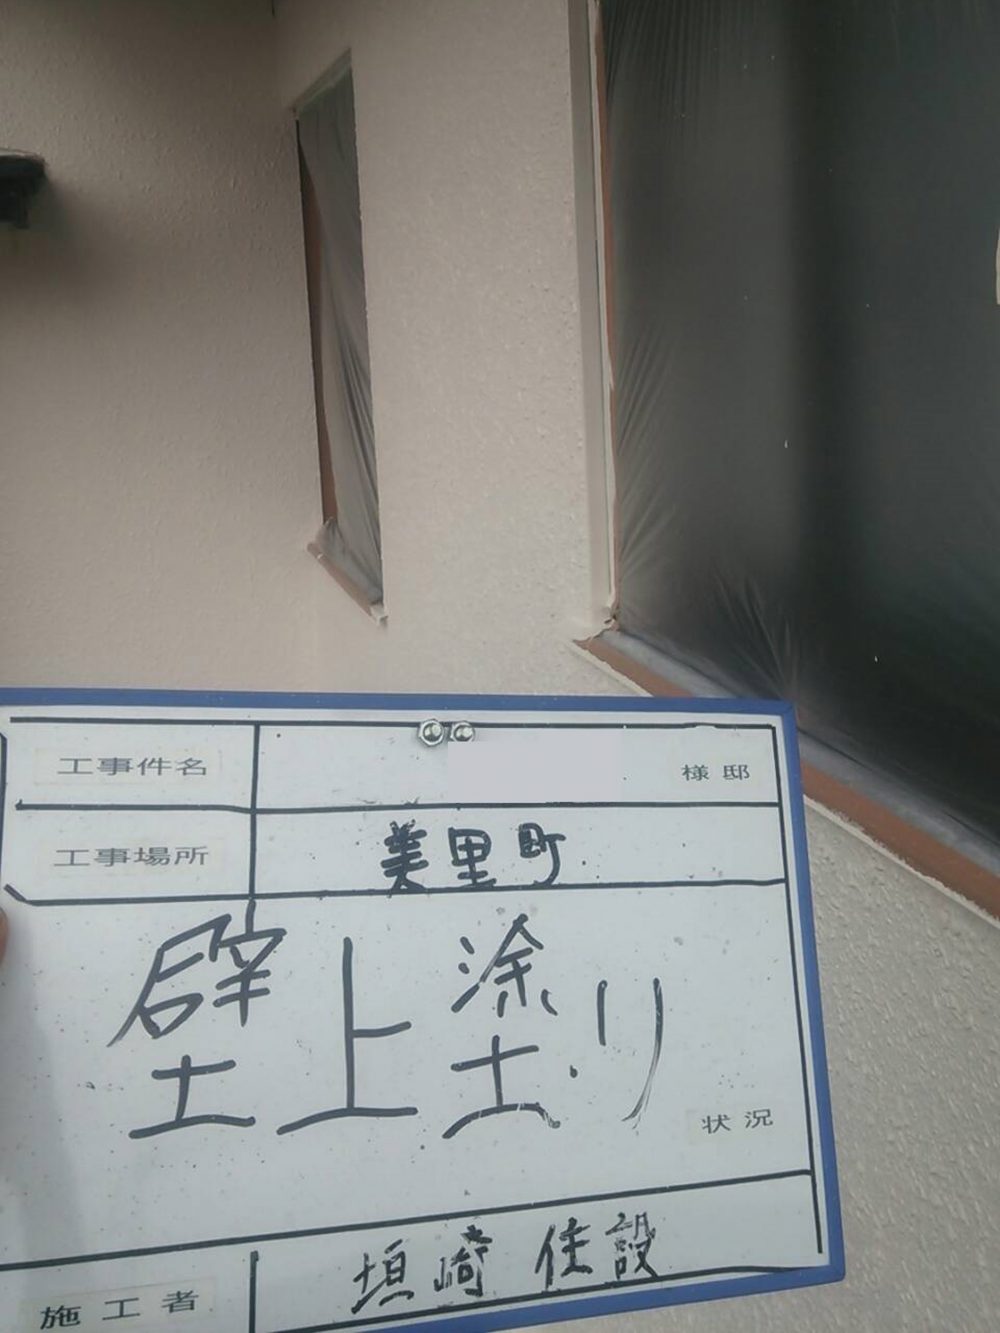 工事件名 様邸
工事場所 美里町
壁上塗り
状況
施工者 垣崎 住設